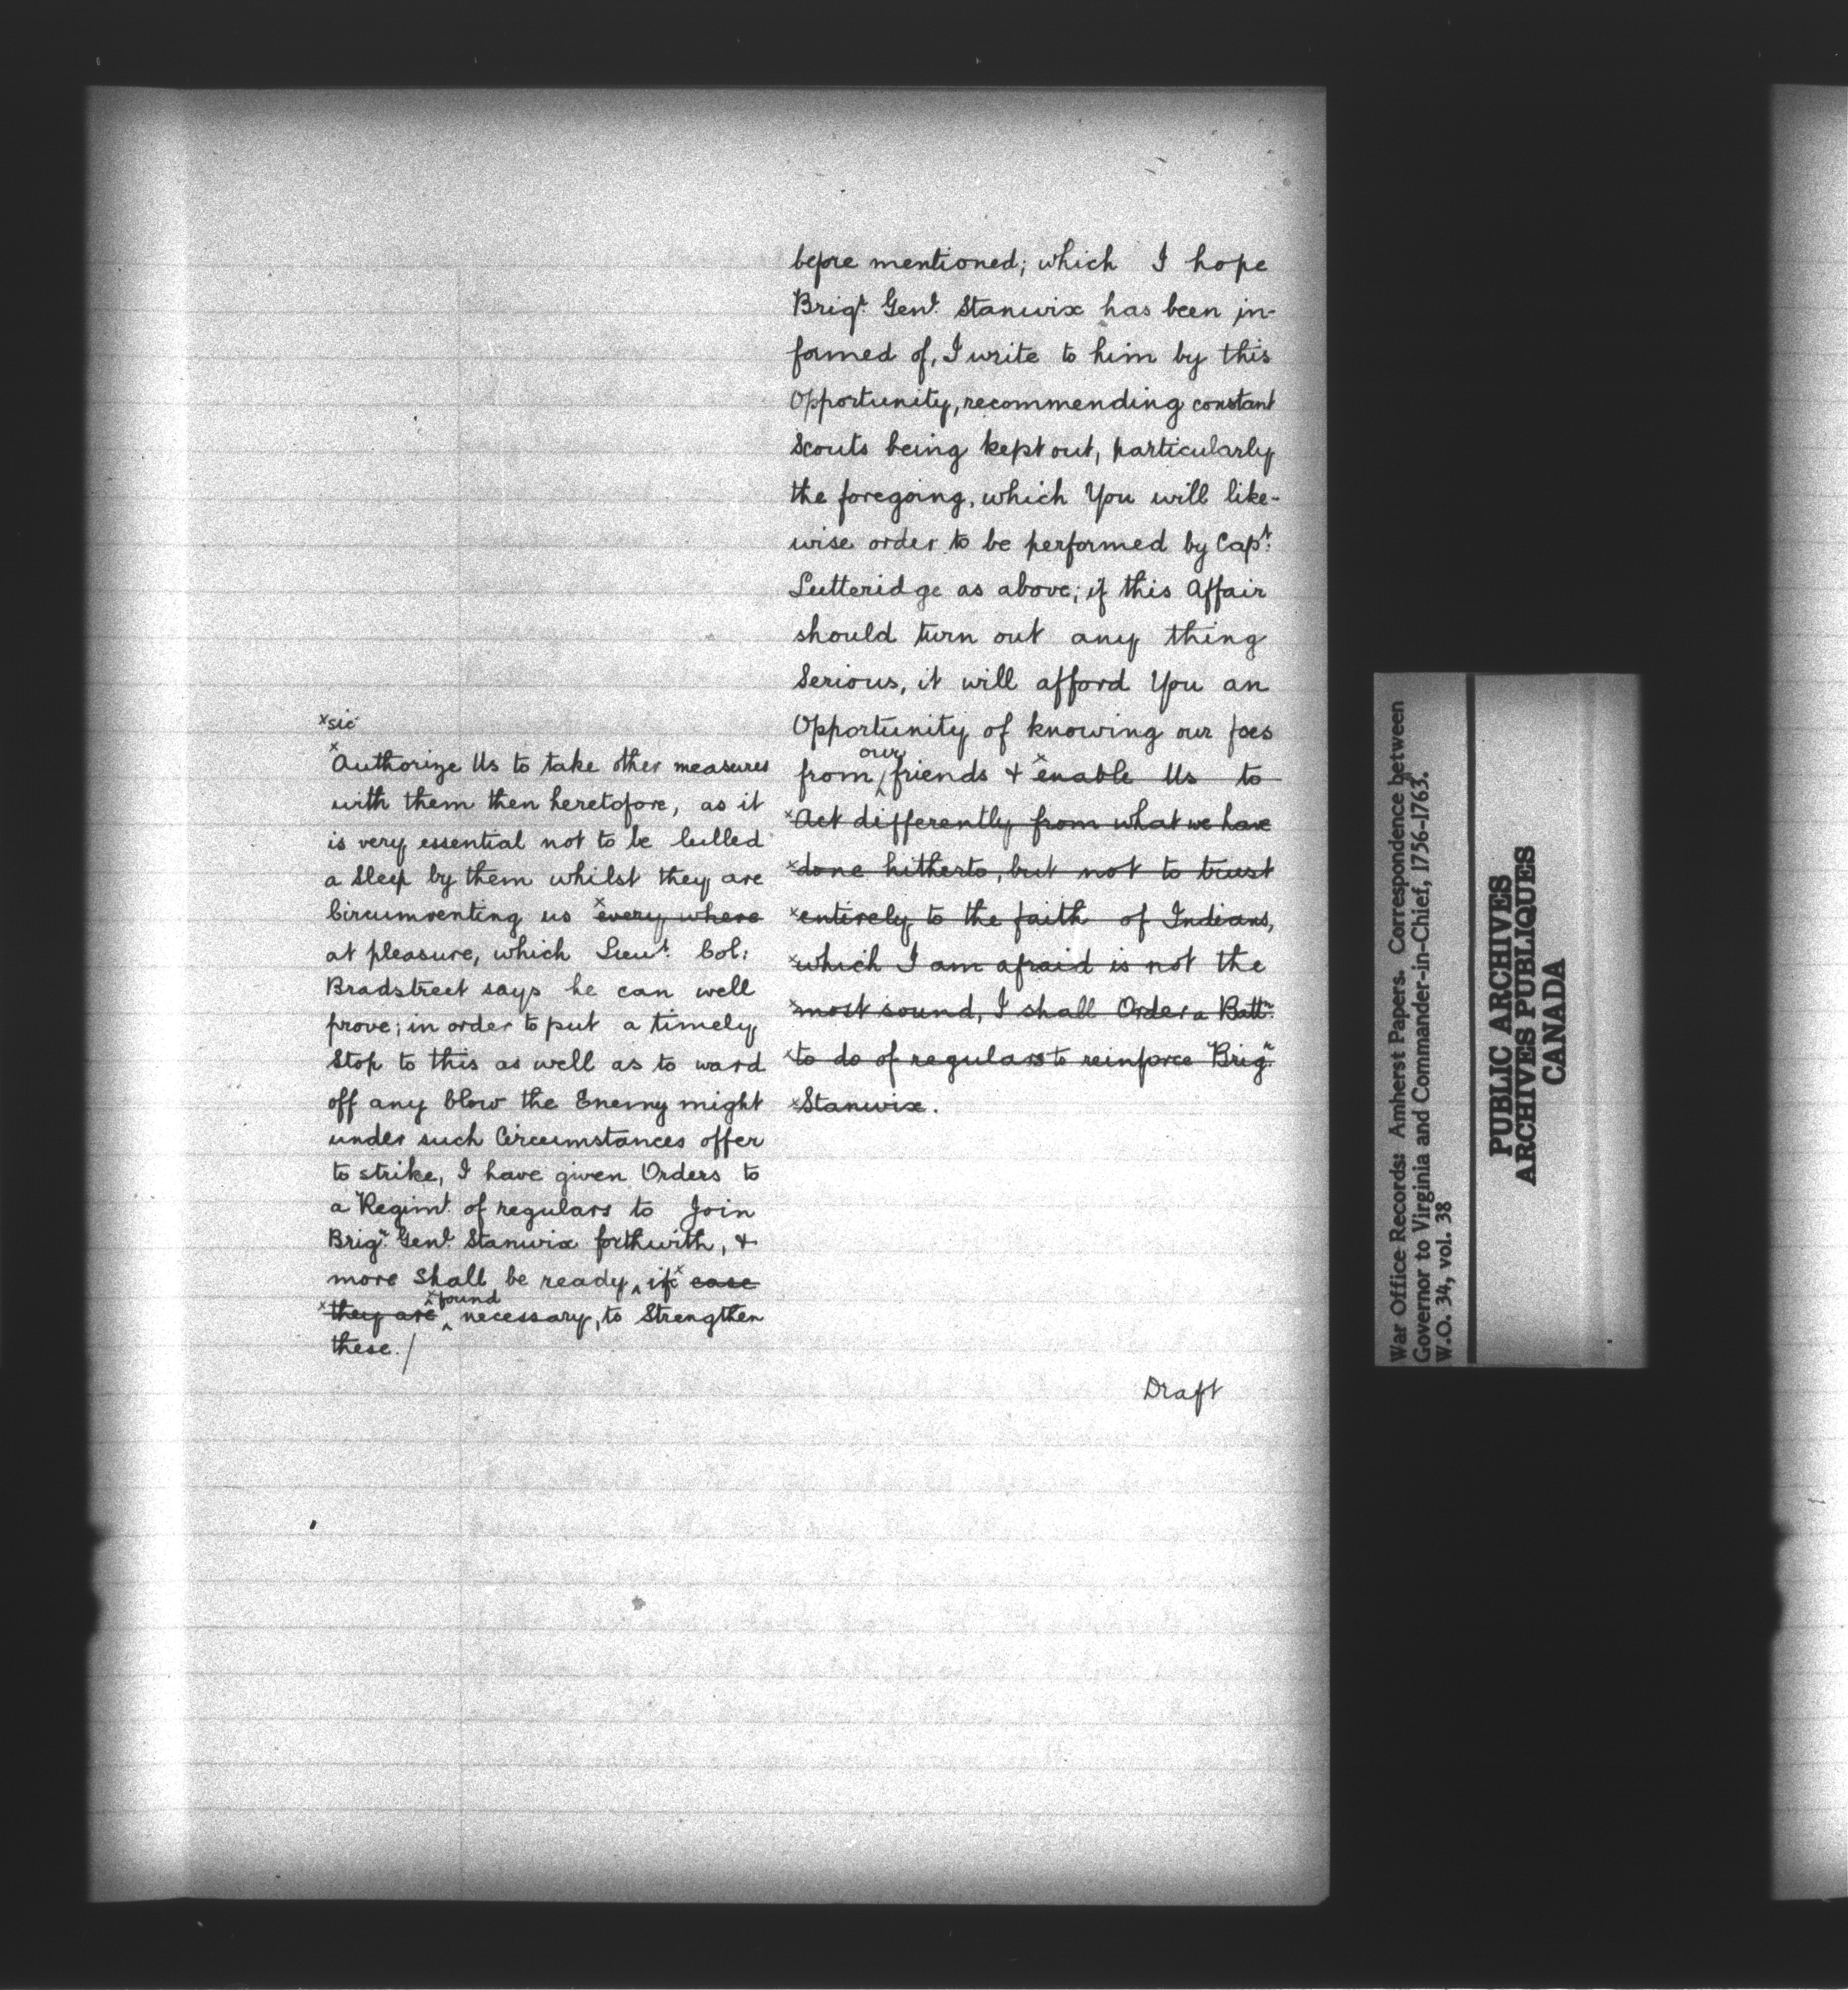 before mentioned; which I hope
Brigr. Genl. Stanwix has been in-
formed of, I write to him by this
Opportunity, recommending constant
Scouts being kept out, particularly
the foregoing, which You will like-
wise order to be performed by Capt.
Lutteridge as above; if this Affair
should turn out any thing
Serious, it will afford You an
Opportunity of knowing our foes
from our friends & xenable Us to
xAct differently from what we have
xdone hitherto, but not to trust
xentirely to the faith of Indians,
xwhich I am afraid is not the
xmost sound, I shall Order a Battn.
xto do of regulars to reinforce Brigr.
xStanwix.
xsic
xAuthorize Us to take other measures
with them then heretofore, as it
is very essential not to be lulled
a Sleep by them whilst they are
Circumventing us xevery where
at pleasure, which Lieut. Col:
Bradstreet says he can well
prove; in order to put a timely
Stop to this as well as to ward
off any blow the Enemy might
under such Circumstances offer
to strike, I have given Orders to
a Regimt. of regulars to Join
Brigr. Genl. Stanwix forthwith, &
more Shall be ready, if x case
xthey are xfound necessary, to Strengthen
these./
Draft
War Office Records: Amherst Papers. Correspondence between
Governor to Virginia and Commander-in-Chief, 1756-1763.
W.O. 34, vol. 38
PUBLIC ARCHIVES
ARCHIVES PUBLIQUES
CANADA